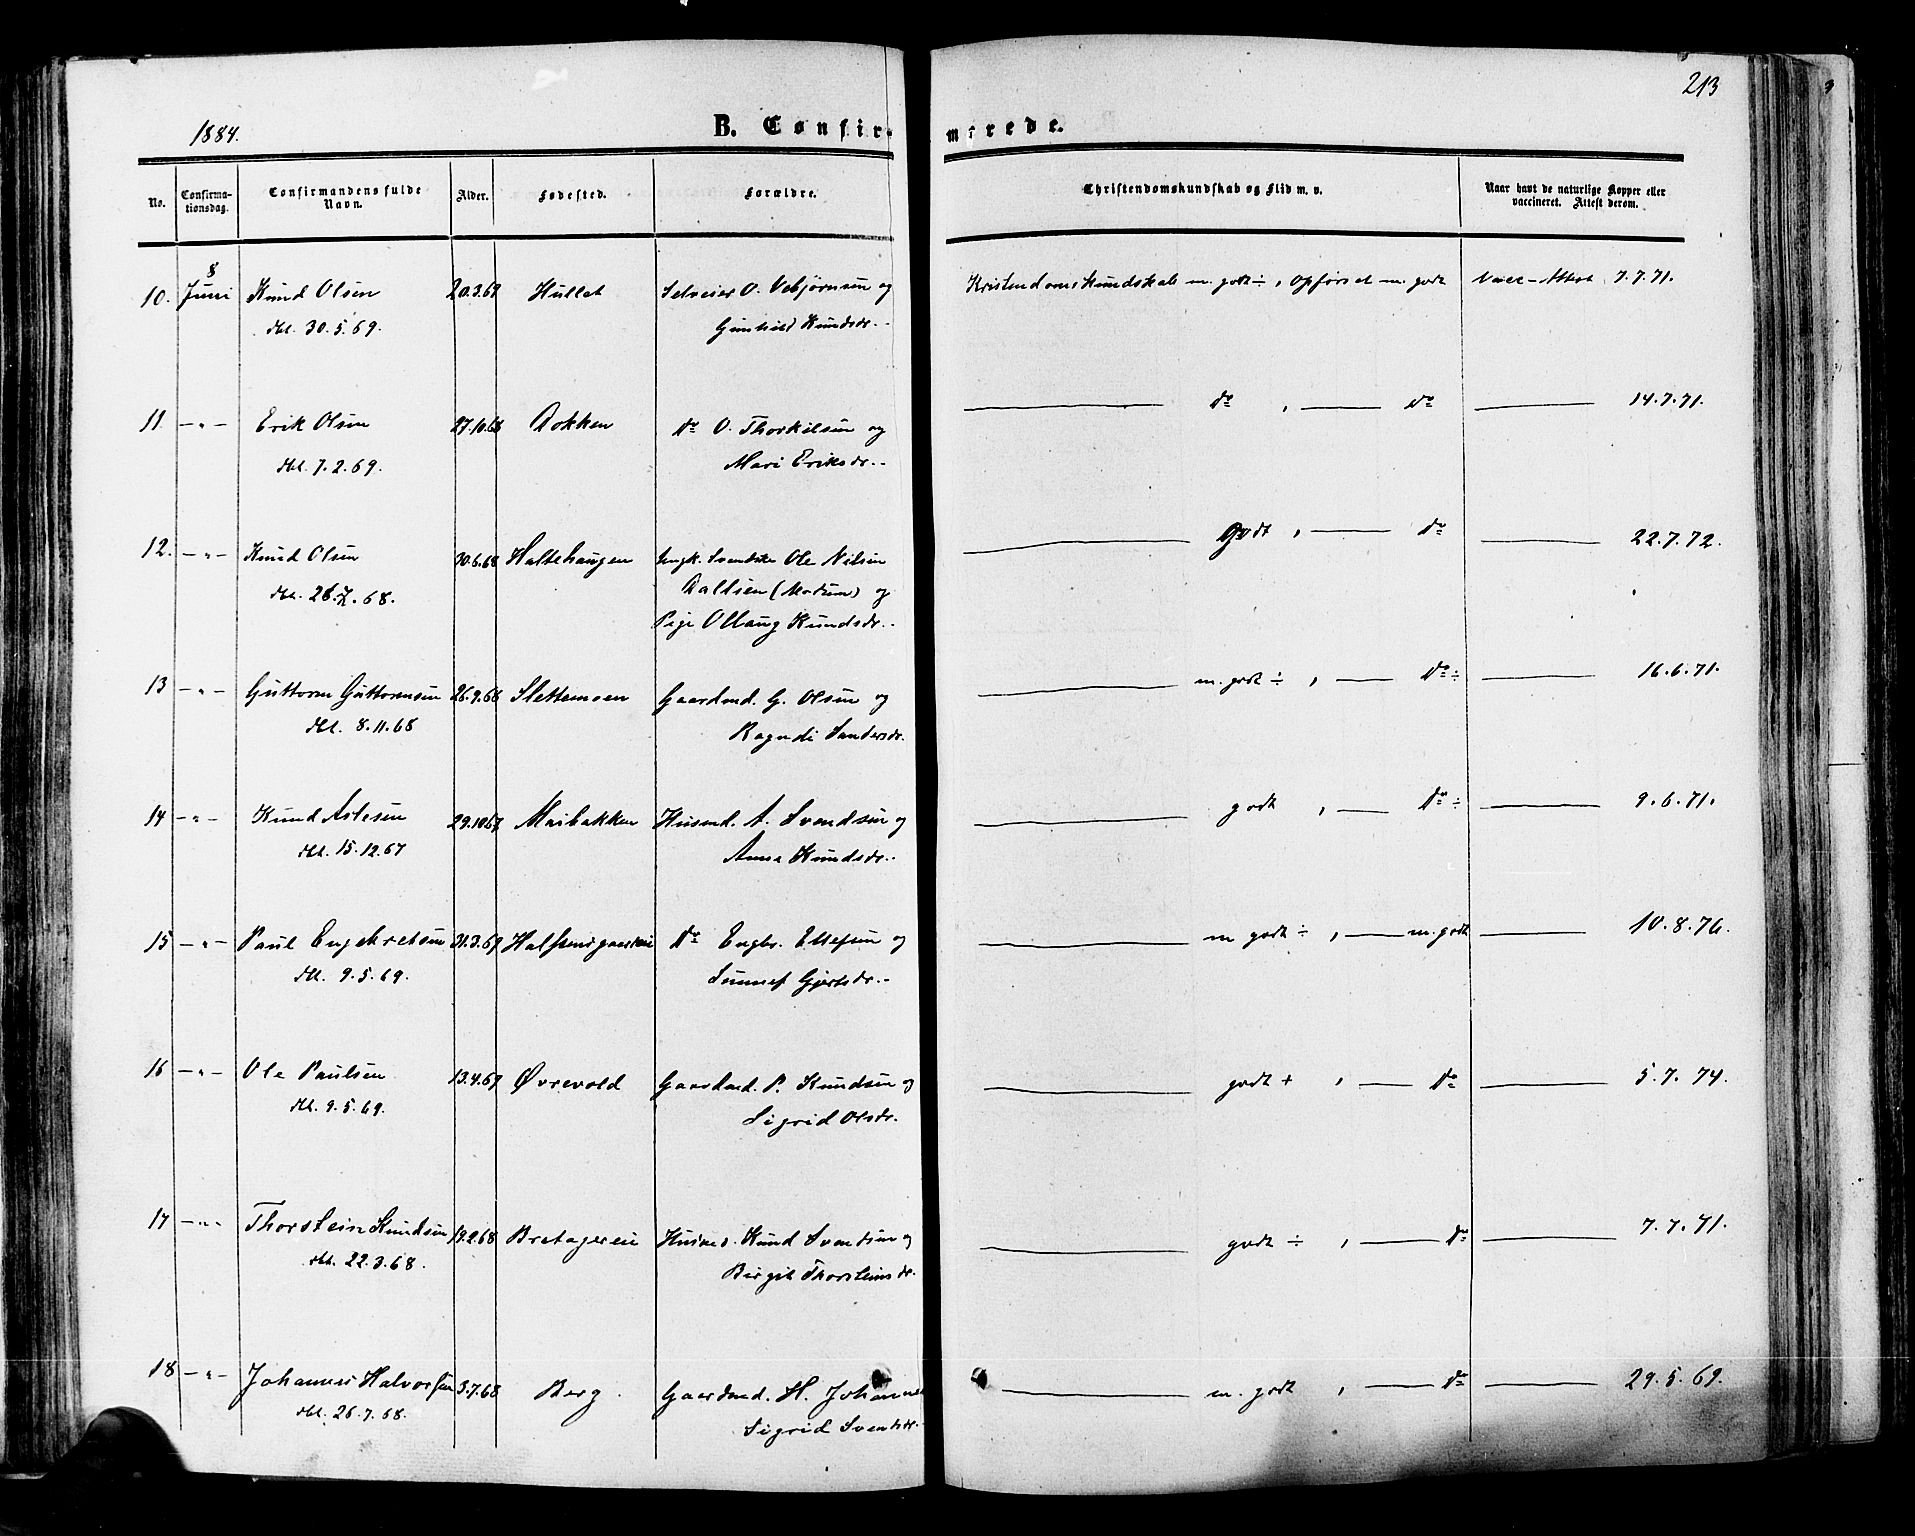 213
1884.
B. Confirmerede.
No.
Confirmationsdag.
Confirmandens fulde Navn.
Alder.
Fødested.
Forældre.
Christendomskundskab og Flid m. v.
Naar havt de naturlige Kopper eller vaccineret. Attest derom.
10. 8 Juni Knud Olsen 20.3.69 Hullet Selveier O. Vebjørnsen og Kristendomskundskab m. godt ÷, opførsel m. godt Vacc-Attest 7.7.71.
dbt. 30.5.69. Gunhild Knudsdr.
11 — " — Erik Olsen 27.10.68 Dokken Do O. Thorkilsen og do, do 14.7.71.
dbt. 7.2.69. Mari Eriksdr.
12. — " — Knud Olsen 30.6.68 Haltehaugen Ungk. Ole Nilsen Godt, do 22.7.72.
dbt. 26.7.68. (Modum) og
Pige Ollaug Knudsdr.
13 — " — Guttorm Guttormsen 26.9.68 Slettemoen Gaardmd. G. Olsen og m. godt ÷, do ÷ 16.6.71.
dbt. 8.11.68 Ragndi Sandersdr.
14 — " — Knud Aslesen 29.10.67 Maibakken Husmd. A. Svendsen og godt, do ÷ 9.6.71.
dbt. 15.12.67 Anna Knudsdr.
15 — " — Paul Engebretsen 31.3.69 Do Engbr. Ellefsen og m godt ÷, m. godt 10.8.76.
dbt. 9.5.69. Sunnef Gjertsdr.
16 — " — Ole Paulsen 13.4.69 Øvrevold Gaardmd. P. Knudsen og godt +, do 5.7.74.
dbt. 9.5.69. Sigrid Olsdr.
17 — " — Thorstein Knudsen 19.2.68 Bratagereie Husmd. Knud Svendsen og godt ÷, do 7.7.71.
dbt. 22.3.68. Birgit Thorsteinsdr.
18 — " — Johannes Halvorsen 3.7.68 Berg. Gaardmd. H. m. godt, do 29.5.69.
dbt. 26.7.68. Sigrid Svendsdr.